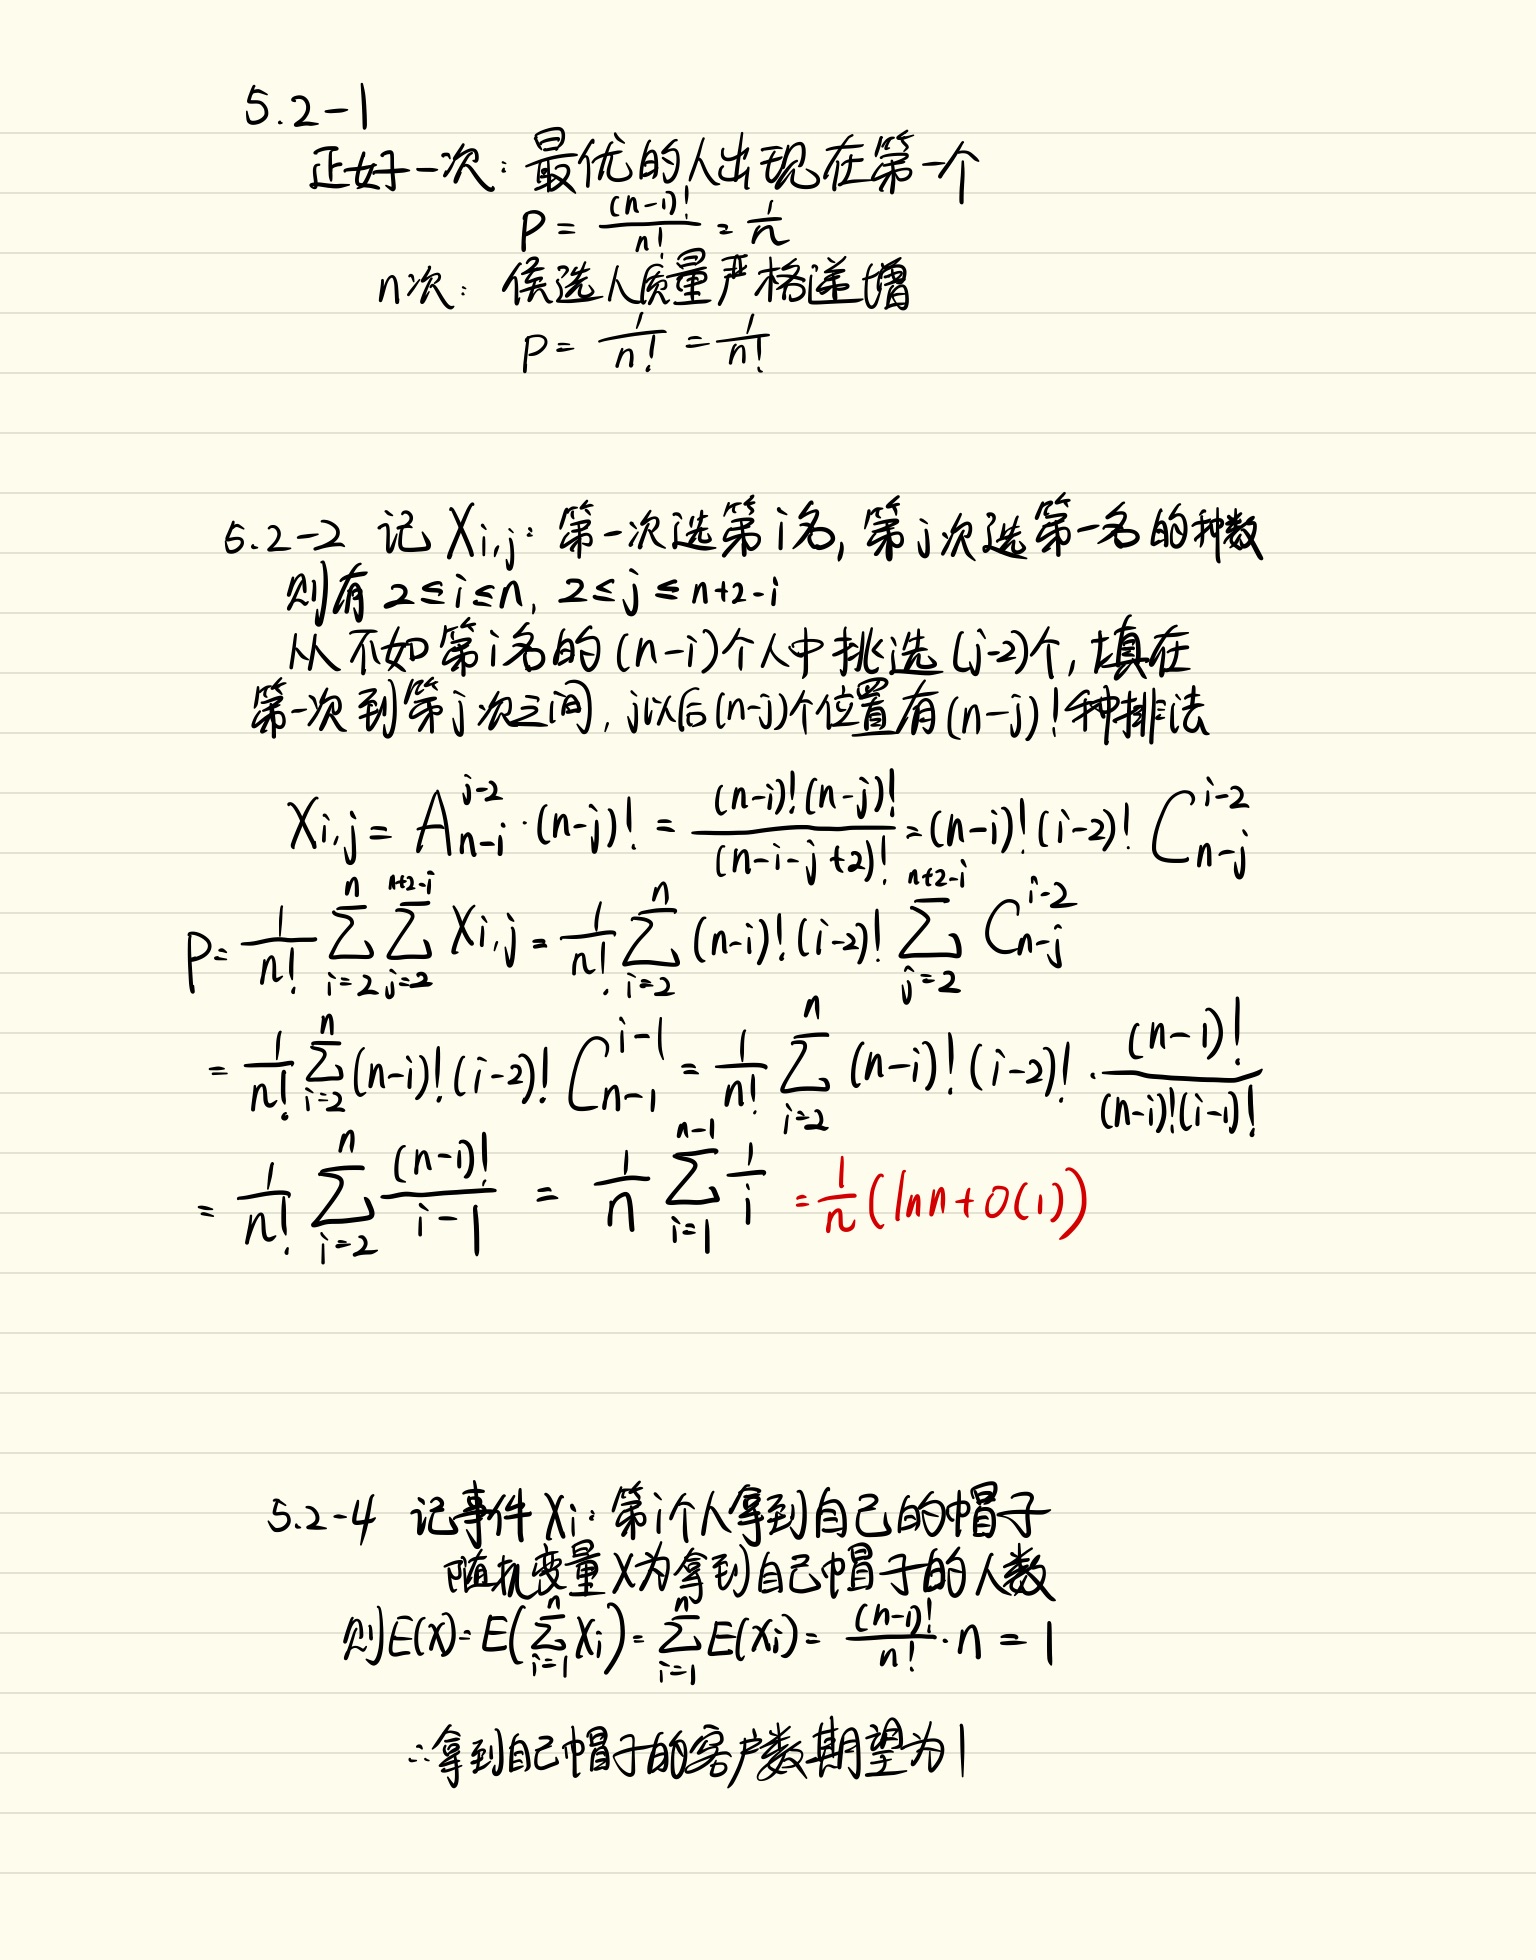 5.2-1
正好一次：最优的人出现在第一个
P = \frac{(n-1)!}{n!} = \frac{1}{n}
n次：候选人质量严格递增
P = \frac{1}{n!} = \frac{1}{n!}
5.2-2 记 X_{i,j}：第一次选第i名，第j次选第一名的种数
则有 2≤i≤n, 2≤j≤n+2-i
从不如第i名的(n-i)个人中挑选(j-2)个，填在
第一次到第j次之间，j以后(n-j)个位置有(n-j)!种排法
X_{i,j} = A_{n-i}^{j-2}·(n-j)! = \frac{(n-i)!(n-j)!}{(n-i-j+2)!} = (n-i)!(i-2)! C_{n-j}^{i-2}
P = \frac{1}{n!} \sum_{i=2}^{n} \sum_{j=2}^{n+2-i} X_{i,j} = \frac{1}{n!} \sum_{i=2}^{n} (n-i)!(i-2)! \sum_{j=2}^{n+2-i} C_{n-j}^{i-2}
= \frac{1}{n!} \sum_{i=2}^{n} (n-i)!(i-2)! C_{n-1}^{i-1} = \frac{1}{n!} \sum_{i=2}^{n} (n-i)!(i-2)! · \frac{(n-1)!}{(n-i)!(i-1)!}
= \frac{1}{n!} \sum_{i=2}^{n} \frac{(n-1)!}{i-1} = \frac{1}{n} \sum_{i=1}^{n-1} \frac{1}{i} = \frac{1}{n}(ln n + O(1))
5.2-4 记事件 X_i：第i个人拿到自己的帽子
随机变量X为拿到自己帽子的人数
则E(X) = E(\sum_{i=1}^{n} X_i) = \sum_{i=1}^{n} E(X_i) = \frac{(n-1)!}{n!}·n = 1
∴拿到自己帽子的客户数期望为1